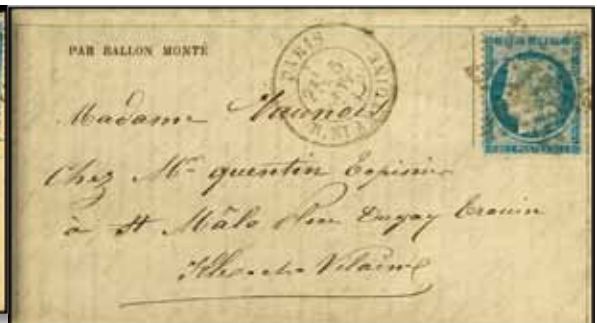 PAR BALLON MONTÉ
PARIS
5
R. St ANTOINE
Madame Vaunois
Chez Mr quentin Epicier
à St Mâlo Rue Dugay Trouin
Ille et Vilaine